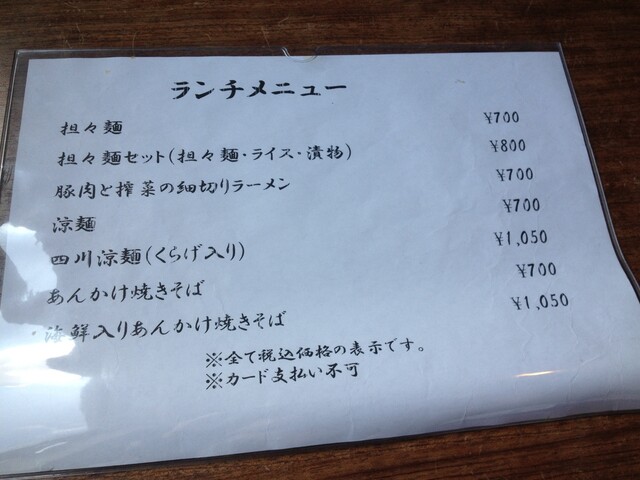 ランチメニュー
担々麺 ¥700
担々麺セット(担々麺・ライス・漬物) ¥800
豚肉と搾菜の細切りラーメン ¥700
涼麺 ¥700
四川涼麺(くらげ入り) ¥1,050
あんかけ焼きそば ¥700
海鮮入りあんかけ焼きそば ¥1,050
※全て税込価格の表示です。
※カード支払い不可